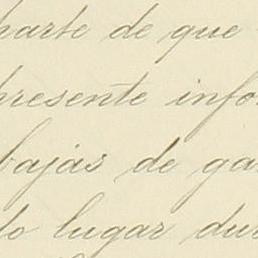 parte de que
presente info
bajas de ga
do lugar dur